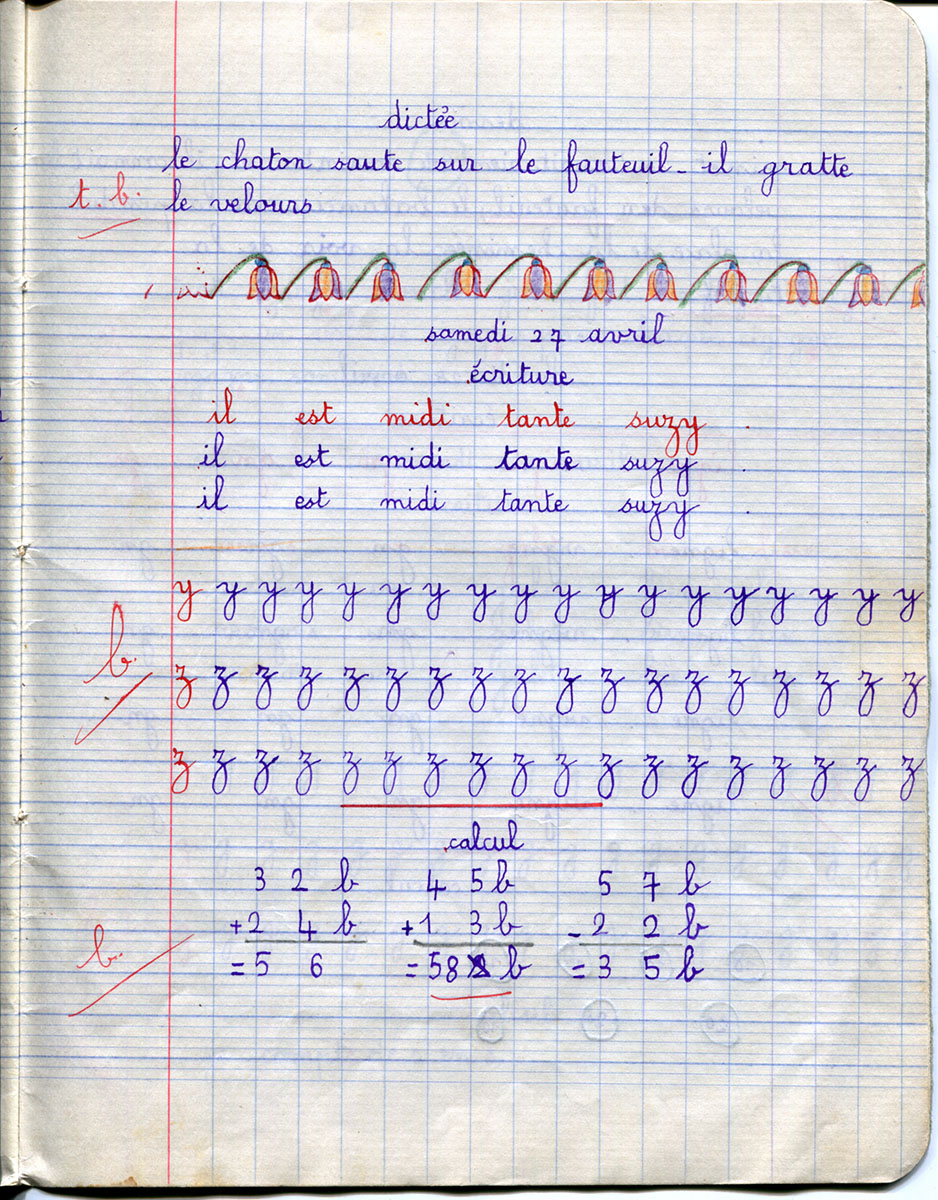 dictée
le chaton saute sur le fauteuil - il gratte
t. b. le velours
samedi 27 avril
écriture
il est midi tante suzy .
il est midi tante suzy .
il est midi tante suzy .
y y y y y y y y y y y y y y y y y y
b.
z z z z z z z z z z z z z z z z z z
z z z z z z z z z z z z z z z z z z
calcul
3 2 b 4 5 b 5 7 b
+2 4 b +1 3 b -2 2 b
b. =5 6 =58 b =3 5 b